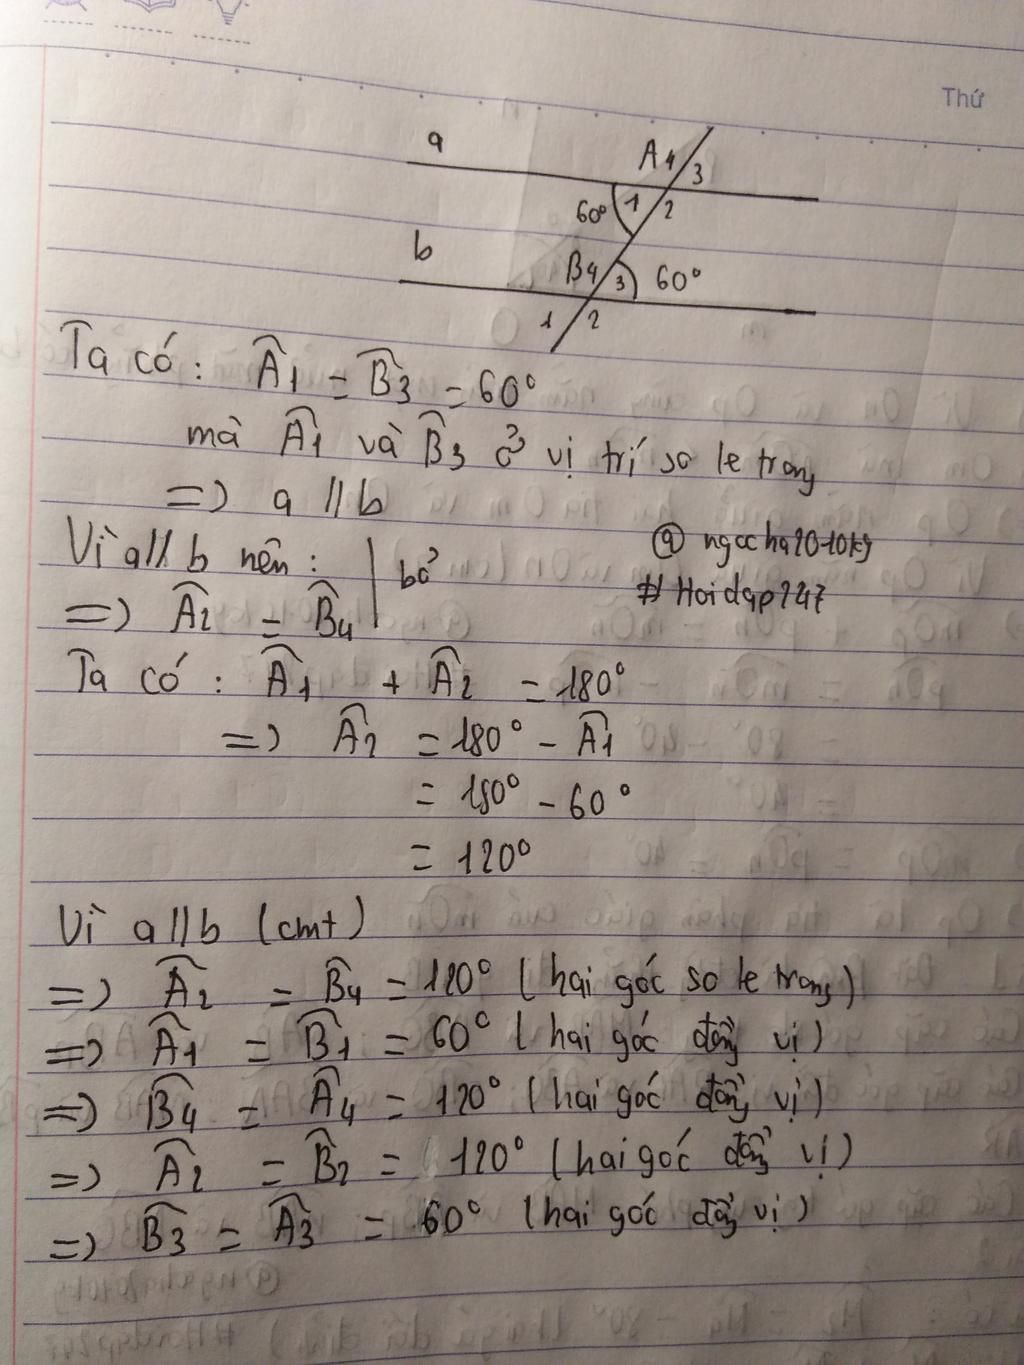 Thứ
a
A 4 3
60° 1 2
b
B 4 3 60°
1 2
Ta có: Â1 = B̂3 = 60°
mà Â1 và B̂3 ở vị trí so le trong
=> a // b
Vì a // b nên: bỏ
@ ngocha2010ky
=> Â2 = B̂4
# Hoidap247
Ta có: Â1 + Â2 = 180°
=> Â2 = 180° - Â1
= 180° - 60°
= 120°
Vì a // b (cmt)
=> Â2 = B̂4 = 120° (hai góc so le trong)
=> Â1 = B̂1 = 60° (hai góc đồng vị)
=> B̂4 = Â4 = 120° (hai góc đồng vị)
=> Â2 = B̂2 = 120° (hai góc đồng vị)
=> B̂3 = Â3 = 60° (hai góc đồng vị)